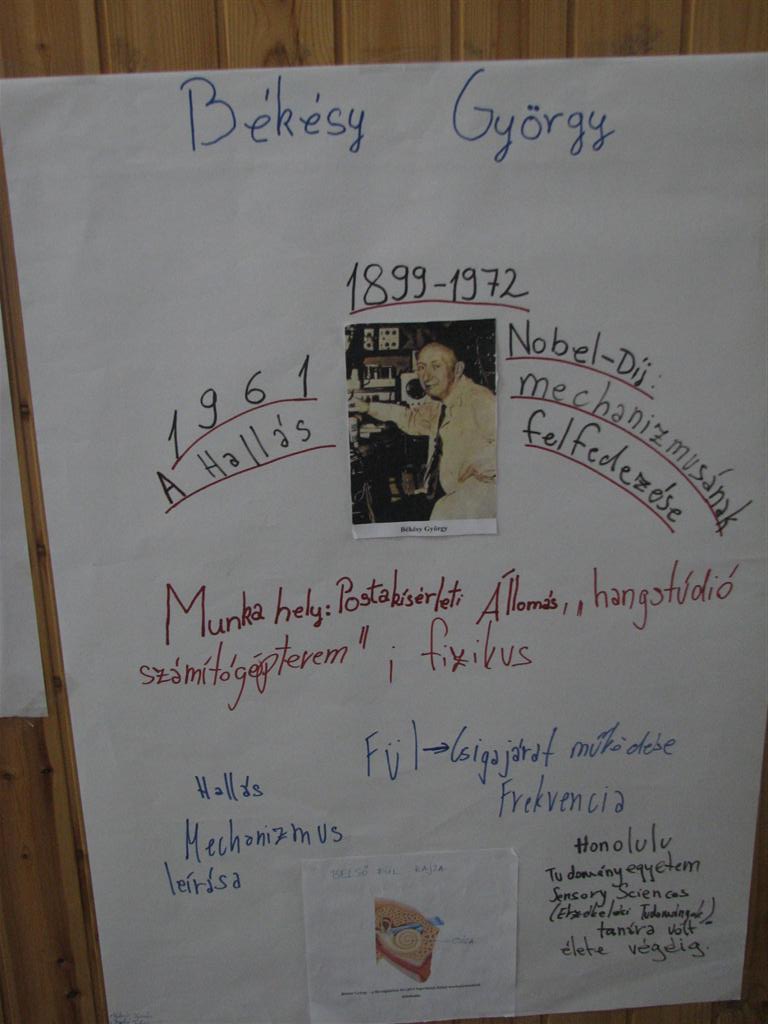 Békésy György
1899-1972
1961 Nobel-Díj:
A Hallás mechanizmusának
felfedezése
Békésy György
Munka hely: Postakísérleti Állomás, „hangstúdió
számítógépterem" ; fizikus
Fül→Csigajárat működése
Frekvencia
Hallás
Mechanizmus
leírása
BELSŐ FÜL RAJZA
CSIGA
Honolulu
Tudományegyetem
Sensory Sciences
(Érzékelési Tudományok)
tanára volt
élete végéig.